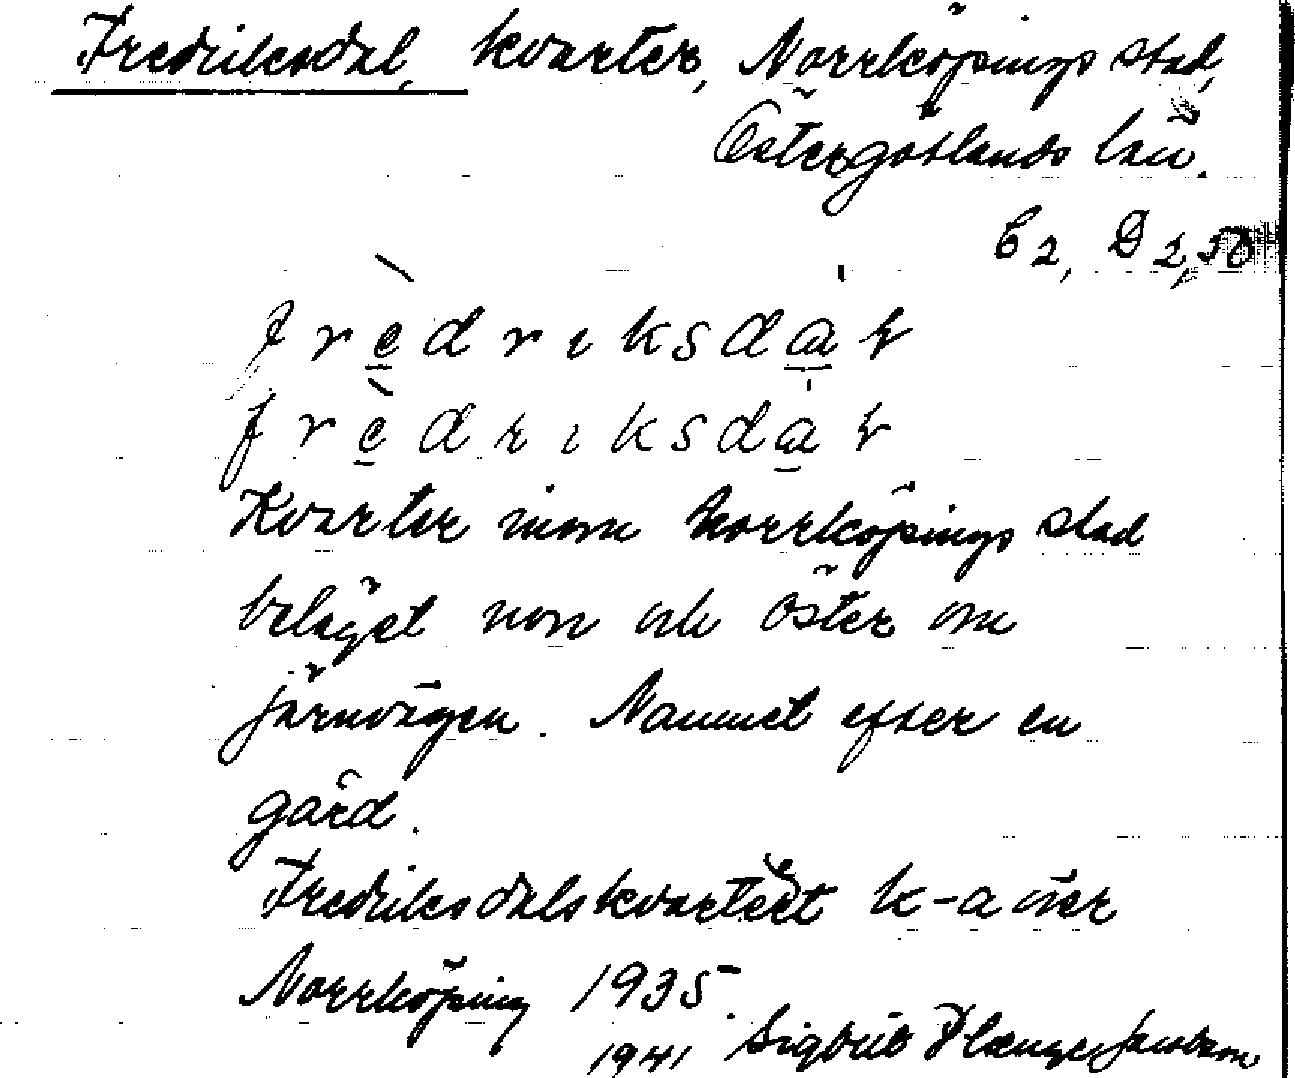 Fredriksdal, kvarter, Norrköpings stad,
Östergötlands län.
C2, D2, 50
frèdrıksdàɫ
frèdrıksdàɫ
Kvarter inom Norrköpings stad
beläget norr och öster om
järnvägen. Namnet efter en
gård.
Fredriksdalskvarteret k-a över
Norrköping 1935.
1941 Sigbrit Plænge Jacobson